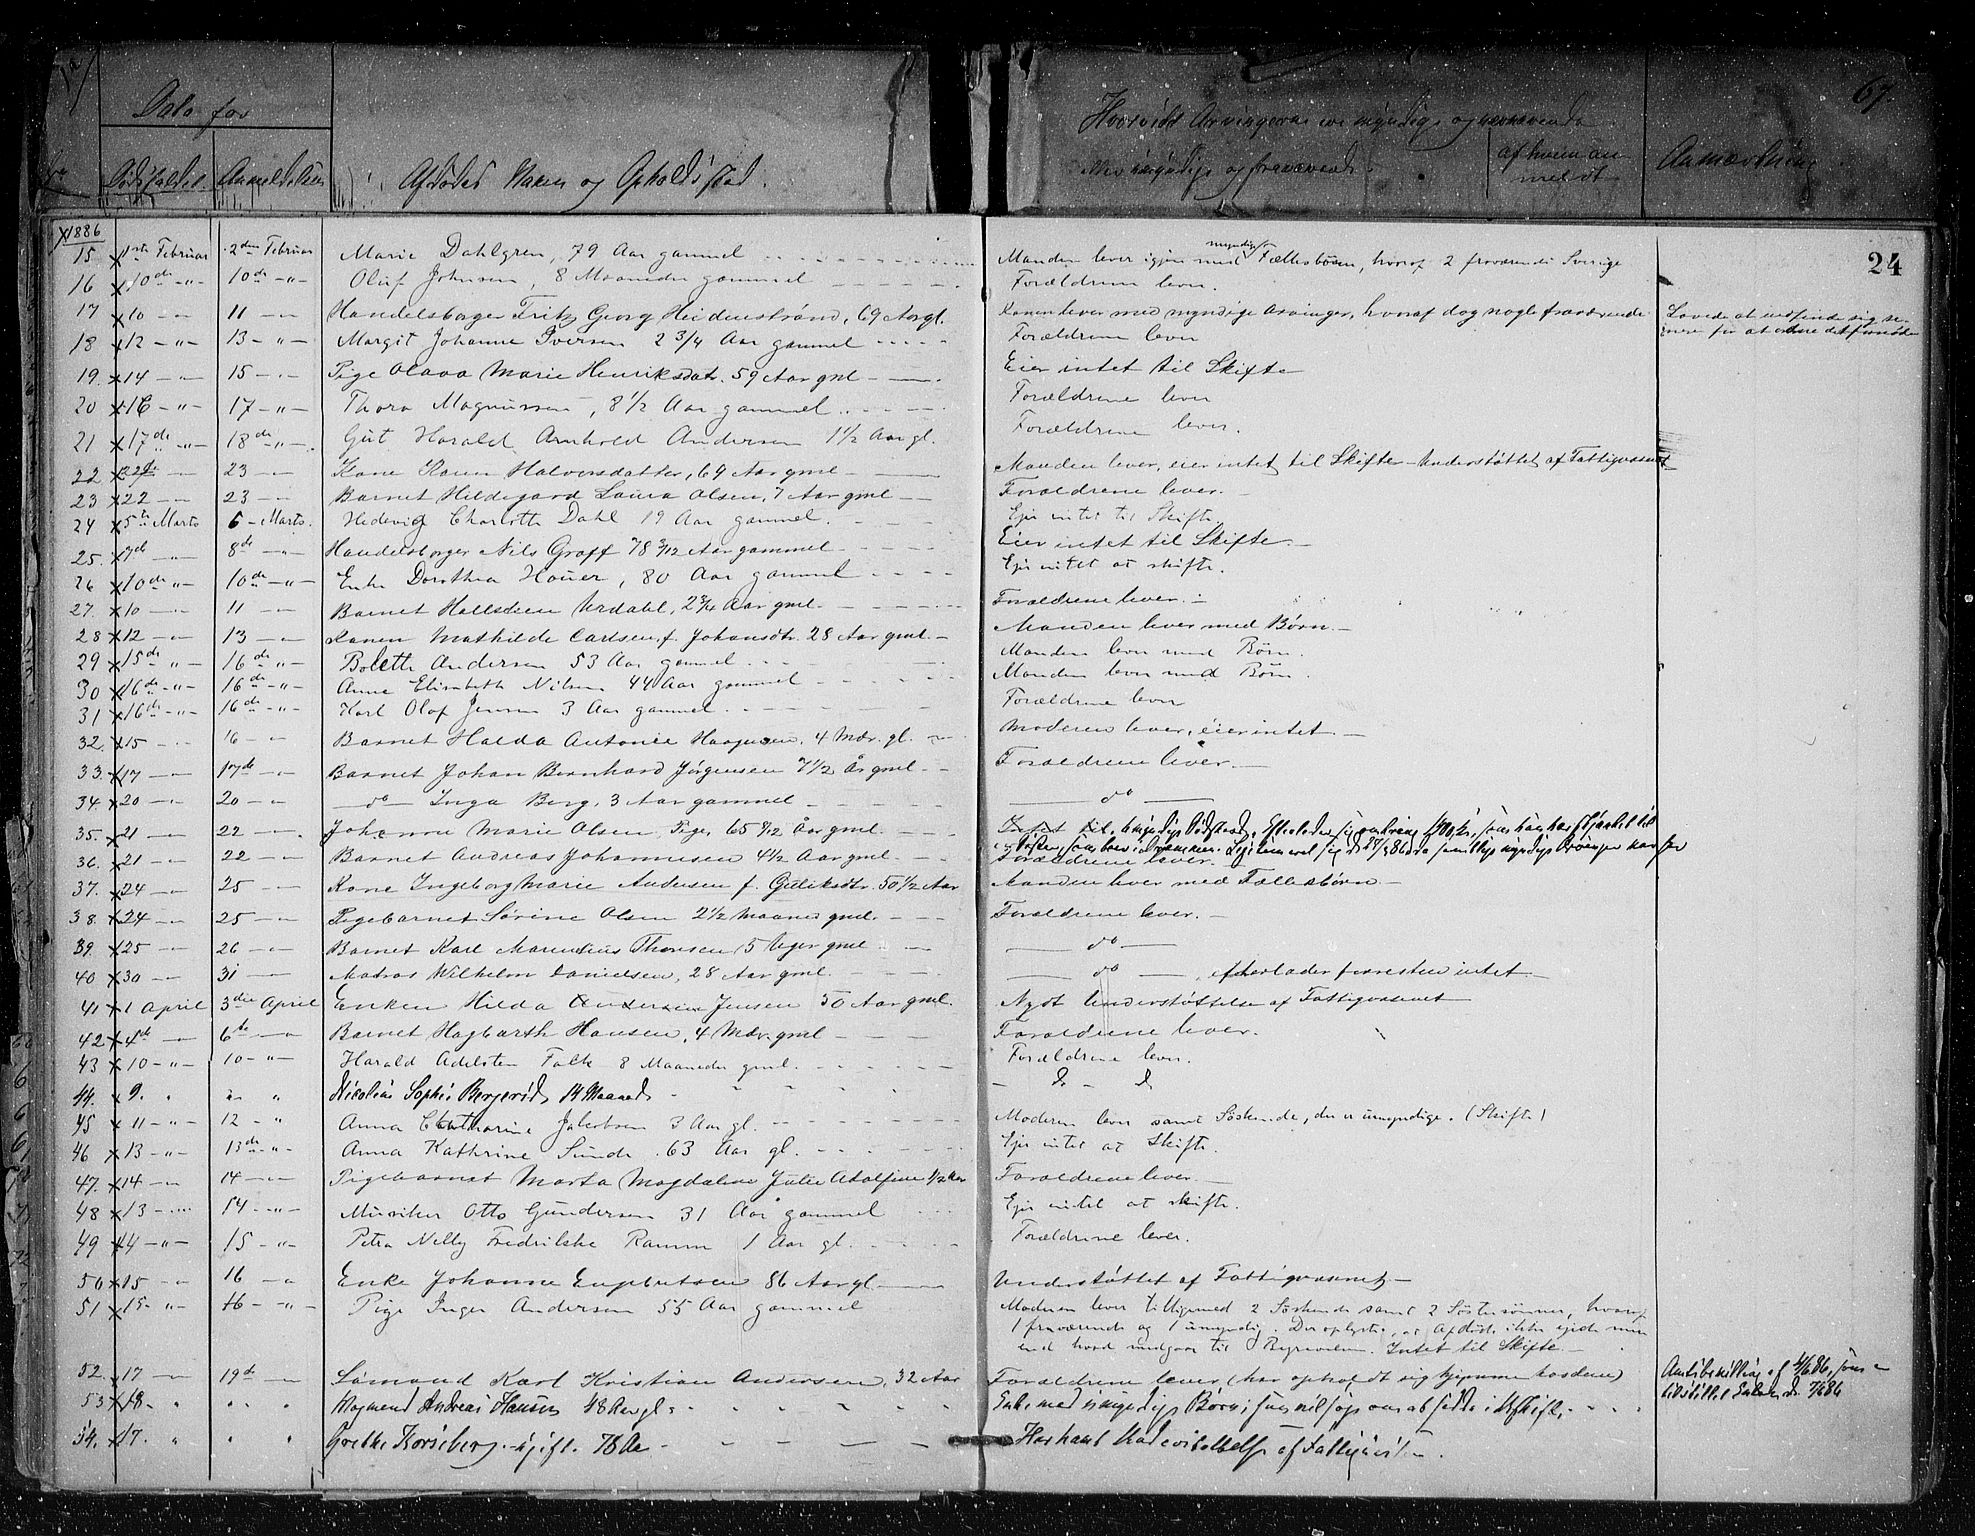 67.
Dato for
Dødsfaldet. Anmeldelsen
Afdødes Navn og Opholdssted.
Hvorvidt Arvingerne ere myndige og nærværende
eller umyndige og fraværende.
af hvem anmeldt
Anmærkning
24
1886
15 1ste Februar 2den Februar Marie Dahlgren, 79 Aar gammel Manden lever igjen med myndige Fællesbørn, hvoraf 2 fraværende i Sverige
16 10de -"- 10de -"- Oluf Johnsen, 8 Maaneder gammel Forældrene lever.
17 10 -"- 11 -"- Handelsborger Fritz Georg Heidenstrøm, 69 Aar gl. Konen lever med myndige Arvinger, hvoraf dog nogle fraværende Lovede at indfinde sig se-
nere for at ordne det fornødne
18 12 -"- 13 -"- Margit Johanne Iversen 2 3/4 Aar gammel Forældrene lever
19. 14 -"- 15 -"- Pige Olava Marie Henriksdatr. 59 Aar gml Eier intet til Skifte
20 16 -"- 17 -"- Thora Magnussen, 8 1/2 Aar gammel Forældrene lever
21 17de -"- 18de -"- Gut Harald Arnhold Andersen 1 1/2 Aar gl. Forældrene lever.
22 22de -"- 23 -"- Kone Karen Halvorsdatter, 69 Aar gml Manden lever, eier intet til Skifte - Understøttet af Fattigvæsnet
23 22 -"- 23 -"- Barnet Hildegard Laura Olsen, 7 Aar gml Forældrene lever.
24 5te Marts 6 - Marts. Hedevig Charlotte Dahl 19 Aar gammel. Ejer intet til Skifte.
25. 7de -"- 8de -"- Handelsborger Nils Graff 78 3/12 Aar gammel Eier intet til Skifte.
26 10de -"- 10de -"- Enke Dorothea Houer, 80 Aar gammel Ejer intet at skifte.
27. 10 -"- 11 -"- Barnet Hallsteen Urdahl, 2 3/4 Aar gml. Forældrene lever.
28 12 -"- 13 -"- Konen Mathilde Carlsen f. Johansdtr. 28 Aar gml. Manden lever med Børn.
29 15de -"- 16de -"- Bolette Andersen 53 Aar gammel Manden lever med Børn.
30 16de -"- 16de -"- Anne Elisabeth Nilsen 44 Aar gammel Manden lever med Børn
31 16de -"- 16de -"- Karl Olaf Jensen 3 Aar gammel. Forældrene lever
32. 15 -"- 16 -"- Barnet Halda Antonie Haagensen, 4 Mdr. gl. Moderen lever, eier intet.
33. 17 -"- 17de -"- Barnet Johan Bernhard Jørgensen 7 1/2 År gml Forældrene lever.
34. 20 -"- 20 -"- do Inga Berg, 3 Aar gammel do
35. 21 -"- 22 -"- Johanne Marie Olsen, Pige, 65 8/12 Aar gml.
36. 21 -"- 22 -"- Barnet Andreas Johannesen 4 1/2 Aar gml. Forældrene lever.
37. 24 -"- 25 -"- Kone Ingeborg Marie Andersen f. Guliksdtr. 50 1/2 Aar Manden lever med Fællesbørn
38. 24 -"- 25 -"- Pigebarnet Sørine Olsen 2 1/2 Maaned gml. Forældrene lever.
39. 25 -"- 26 -"- Barnet Karl Marendius Thoresen, 5 Uger gml do
40 30 -"- 31 -"- Matros Wilhelm Danielsen, 28 Aar gml. do, efterlader forresten intet
41 1 April 3die April Enken Hilda Andersen Jensen 50 Aar gml. Nyot Understøttelse af Fattigvæsenet
42 4de -"- 6te -"- Barnet Hagbarth Hansen, 4 Mdr. gml Forældrene lever.
43 10 -"- 10 -"- Harald Adelsten Falk 8 Maaneder gml. Forældrene lever.
44. 9. " " " Nicoline Sophie Bergerød, 14 Maaned - d - d
45 11 -"- 12 -"- Anna Chatharine Jakobsen 3 Aar gl. Moderen lever samt Søskende, der er umyndige. (Skifte)
46 13 -"- 13de -"- Anna Kathrine Sunde. 63 Aar gl. Ejer intet at Skifte.
47. 14 -"- 14 -"- Pigebarnet Marta Magdalene Julie Adolfine 1/2 Aar Forældrene lever
48 13 -"- 14 -"- Musiker Otto Gundersen 31 Aar gammel Ejer intet at skifte.
49 14 -"- 15 -"- Petra Nelly Fredrikke Ramm 1 Aar gl. Forældrene lever.
50 15 -"- 16 -"- Enke Johanne Engbretsen 86 Aar gl. Understøttet af Fattigvæsnet
51 15 -"- 16 -"- Pige Inger Andersen 55 Aar gammel Moderen lever tilligemed 2 Søskende samt 2 Søstersønner, hvoraf
1 fraværende og 1 umyndig. Der oplystes, at Afdøde ikke ejede mere
end hvad medgaar til Begravelsen. Intet til Skifte
52. 17 -"- 19de -"- Sømand Karl Kristian Andersen, 32 Aar Forældrene lever (har opholdt sig hjemme hos dem)
53 18. " " " Andreas Hansen 48 Aar gl. Enke med umyndige Børn,
54. 17. " " " Grethe Korseberg ugift. 78 Aar Har havt af Fattigkassen.